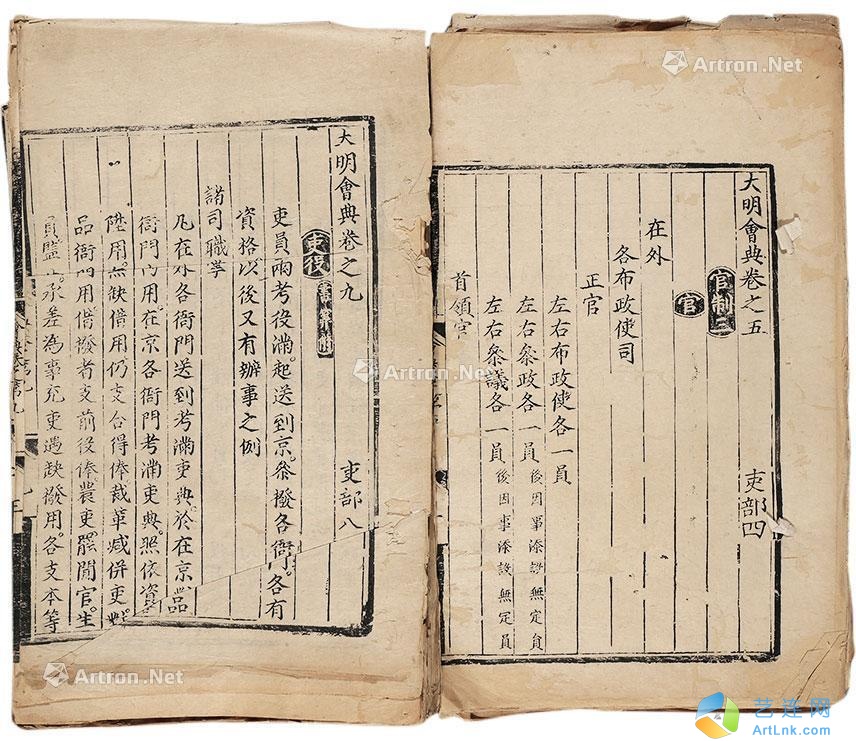 大明會典卷之五
吏部四
官制三
官
在外
各布政使司
正官
左右布政使各一員
左右叅政各一員 後因事添設無定員
左右叅議各一員 後因事添設無定員
首領官
大明會典卷之九
吏部八
吏役
吏員兩考役滿起送到京叅撥各衙門各有
資格以後又有辦事之例
諸司職掌
凡在外各衙門送到考滿吏典於在京 品
衙門內用在京各衙門考滿吏典照依資
陞用無缺借用仍支合得俸裁革減併吏
品衙門用借撥者支前役俸農吏罷閒官生
員監 承差為事充吏遇缺撥用各支本等
Artron.Net
Artron.Net
Artron.Net
Artron.Net
艺连网
ArtLnk.com